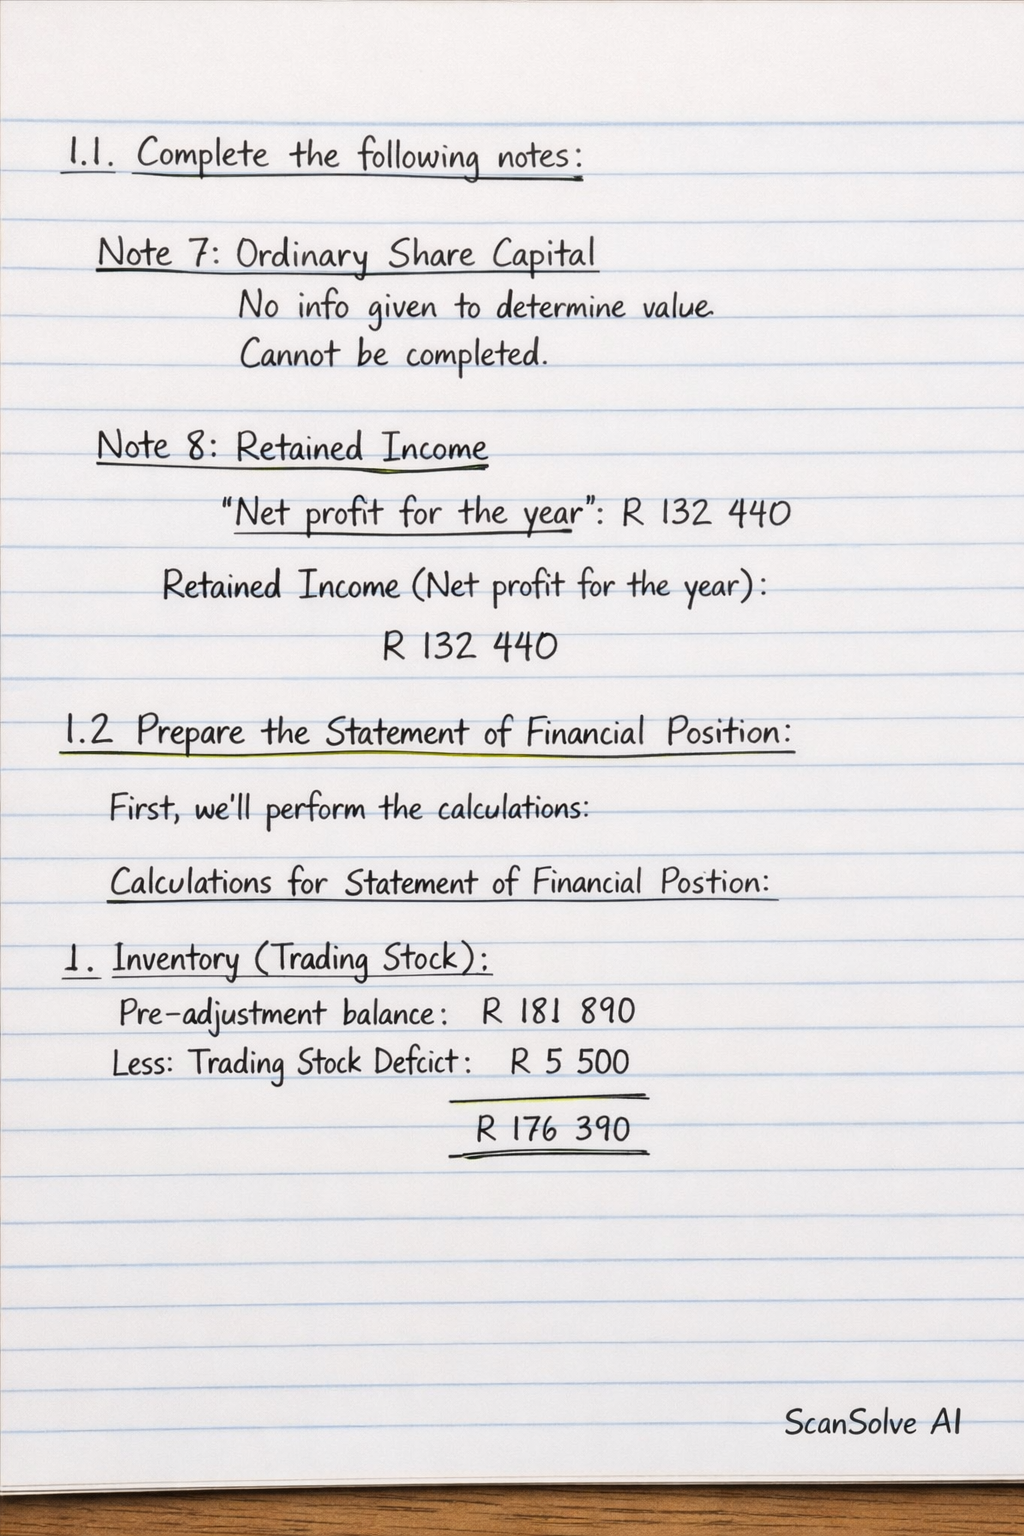 1.1. Complete the following notes:
Note 7: Ordinary Share Capital
No info given to determine value.
Cannot be completed.
Note 8: Retained Income
"Net profit for the year": R 132 440
Retained Income (Net profit for the year):
R 132 440
1.2 Prepare the Statement of Financial Position:
First, we'll perform the calculations:
Calculations for Statement of Financial Postion:
1. Inventory (Trading Stock):
Pre-adjustment balance: R 181 890
Less: Trading Stock Defcict: R 5 500
R 176 390
ScanSolve AI